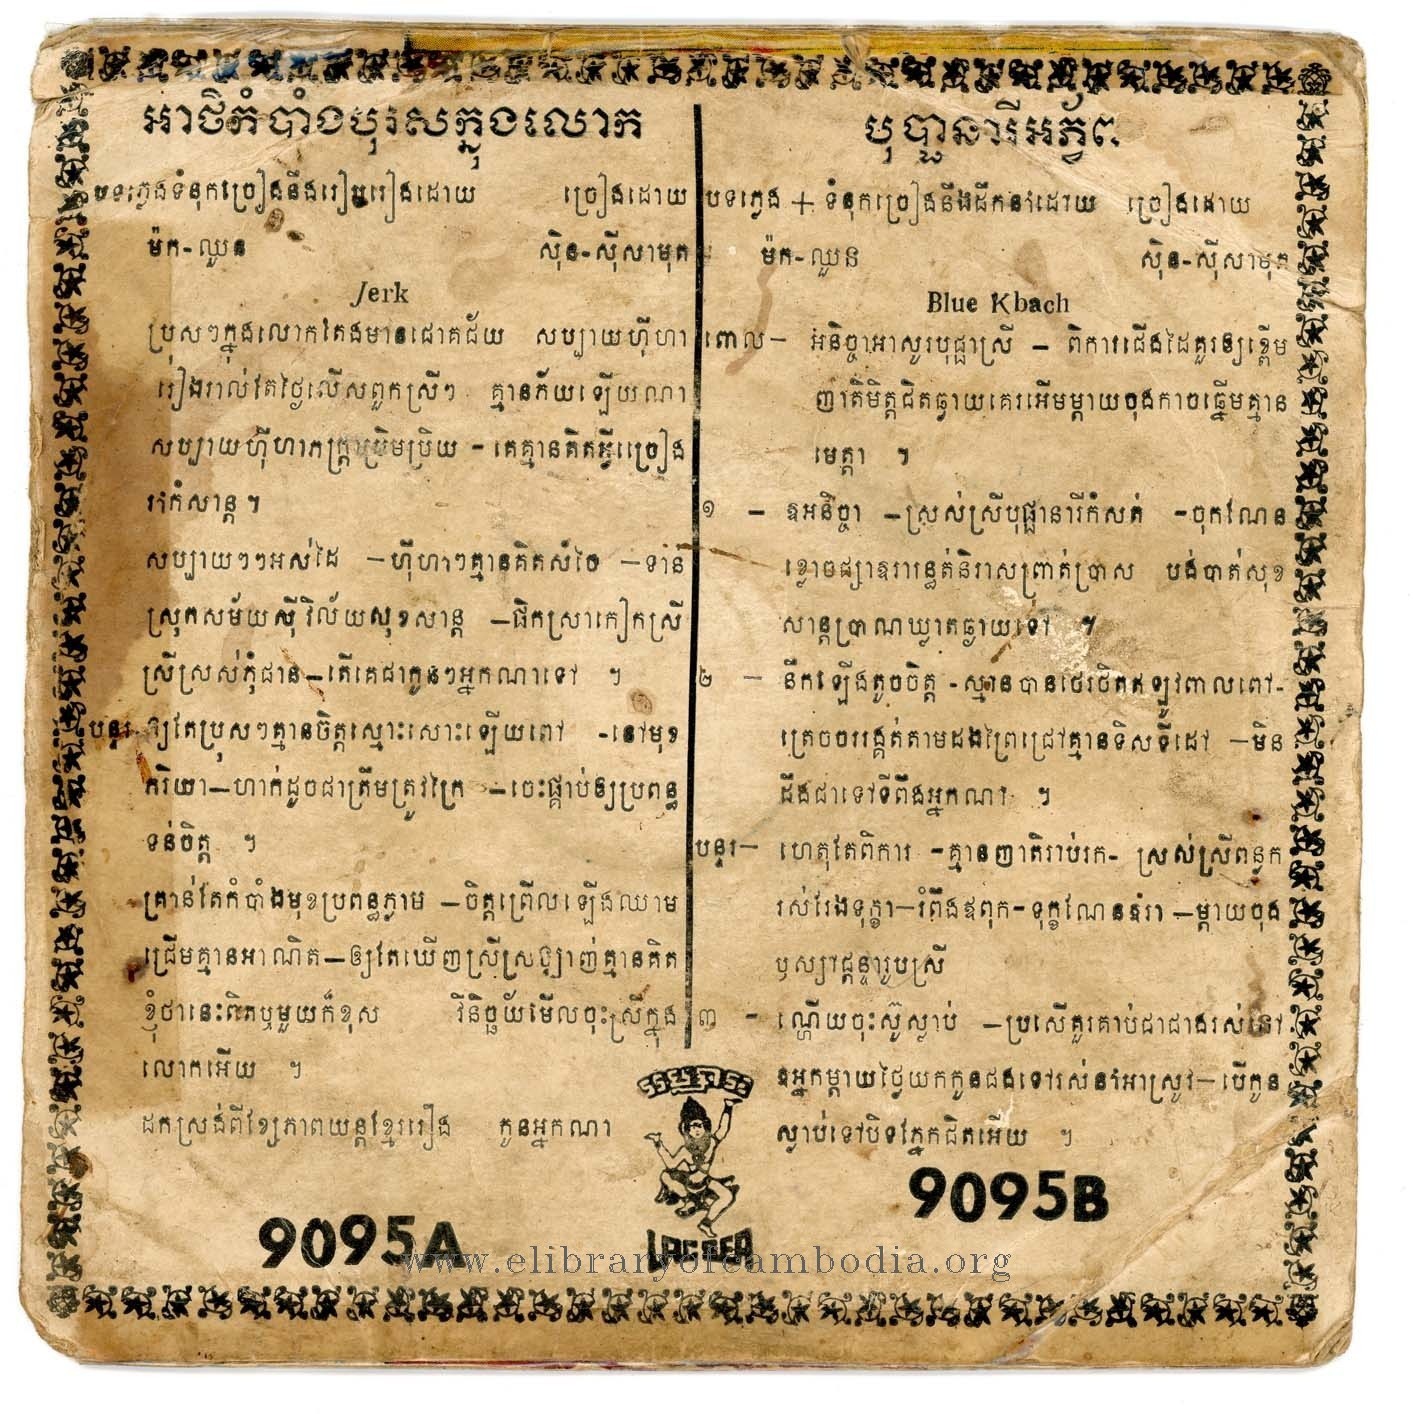 អាថ៌កំបាំងបុរសក្នុងលោក
បទភ្លេងទំនុកច្រៀងនឹងរៀបរៀងដោយ ច្រៀងដោយ
ម៉ក-ឈួន ស៊ិន-ស៊ីសាមុត
Jerk
ប្រុសៗក្នុងលោកតែងមានជោគជ័យ សប្បាយហ៊ីហា
រៀងរាល់តែថ្ងៃលើសពួកស្រីៗ គ្មានភ័យឡើយណា
សប្បាយហ៊ីហាភក្ត្រាប្រិមប្រិយ - គេគ្មានគិតអ្វីច្រៀង
រាំកំសាន្ត ។
សប្បាយៗៗអស់ដៃ —ហ៊ីហាៗគ្មានគិតសំចៃ —ទាន់
ស្រុកសម័យស៊ីវិល័យសុខសាន្ត —ផឹកស្រាកៀកស្រី
ស្រីស្រស់កុំជាន—តើគេជាកូនៗអ្នកណាទៅ ។
បន្ទរ ឲ្យតែប្រុសៗគ្មានចិត្តស្មោះសោះឡើយពៅ -នៅមុខ
ករិយា—ហាក់ដូចជាត្រឹមត្រូវក្រៃ —ចេះផ្គាប់ឲ្យប្រពន្ធ
ទន់ចិត្ត ។
គ្រាន់តែកំបាំងមុខប្រពន្ធភ្លាម —ចិត្តព្រើលឡើងឈាម
ជ្រើមគ្មានអាណិត—ឲ្យតែឃើញស្រីស្រឡាញ់គ្មានគិត
ខ្ញុំថានេះពិតឬមួយក៏ខុស វិនិច្ឆ័យមើលចុះស្រីក្នុង
លោកអើយ ។
ដកស្រង់ពីខ្សែភាពយន្តខ្មែររឿង កូនអ្នកណា
9095A
បុប្ផានារីអភ័ព្វ
បទភ្លេង + ទំនុកច្រៀងនឹងដឹកនាំដោយ ច្រៀងដោយ
ម៉ក-ឈួន ស៊ិន-ស៊ីសាមុត
Blue Kbach
ពោល— អនិច្ចាអាសូរបុផ្ផាស្រី — ពិការជើងដៃគួរឲ្យខ្ពើម
ញាតិមិត្តជិតឆ្ងាយគេរអើមម្ដាយចុងកាចឆ្នើមគ្មាន
មេត្តា ។
១ — ឱអនិច្ចា —ស្រស់ស្រីបុផ្ផានារីកំសត់ -ចុកណែន
ខ្លោចផ្សាឱរាខ្មូតនិរាសព្រាត់ប្រាស បង់បាត់សុខ
សាន្តប្រាណឃ្លាតឆ្ងាយទៅ ។
២ — នឹកឡើងតូចចិត្ត -ស្មានបានថេរចិតឥឡូវពាលពៅ-
ត្រេចចររង្គត់តាមដងព្រៃជ្រៅគ្មានទិសទីដៅ —មិន
ដឹងជាទៅទីពឹងអ្នកណា ។
បន្ទរ— ហេតុតែពិការ -គ្មានញាតិរាប់រក- ស្រស់ស្រីពន្លក
រស់រែងទុក្ខា—រំពឹងឪពុក-ទុក្ខណែនឧរា —ម្ដាយចុង
ឫស្យាផ្ដន្ទារូបស្រី
៣ - ណ្ហើយចុះស៊ូស្លាប់ —ប្រសើគួរគាប់ជាជាងរស់នៅ-
ឱអ្នកម្ដាយថ្លៃយកកូនផងទៅរស់នៅអាស្រូវ—បើកូន
ស្លាប់ទៅបិទភ្នែកជិតអើយ ។
9095B
www.elibraryofcambodia.org